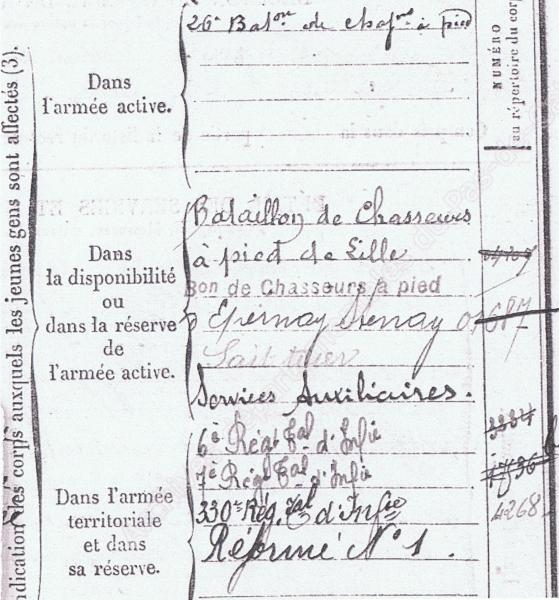 ndication des corps auxquels les jeunes gens sont affectés (3).
NUMÉRO
au répertoire du corp
Dans
l'armée active.
26e Balon de chasrs à pied
Dans
la disponibilité
ou
dans la réserve
de
l'armée active.
Bataillon de Chasseurs
à pied de Lille
Bon de Chasseurs à pied
Epernay Stenay
Services Auxiliaires.
Dans l'armée
territoriale
et dans
sa réserve.
6e Régt Tal d'Infie
7e Régt Tal d'Infie
330e Rég. Tal d'Infie
4268
Réformé No 1.